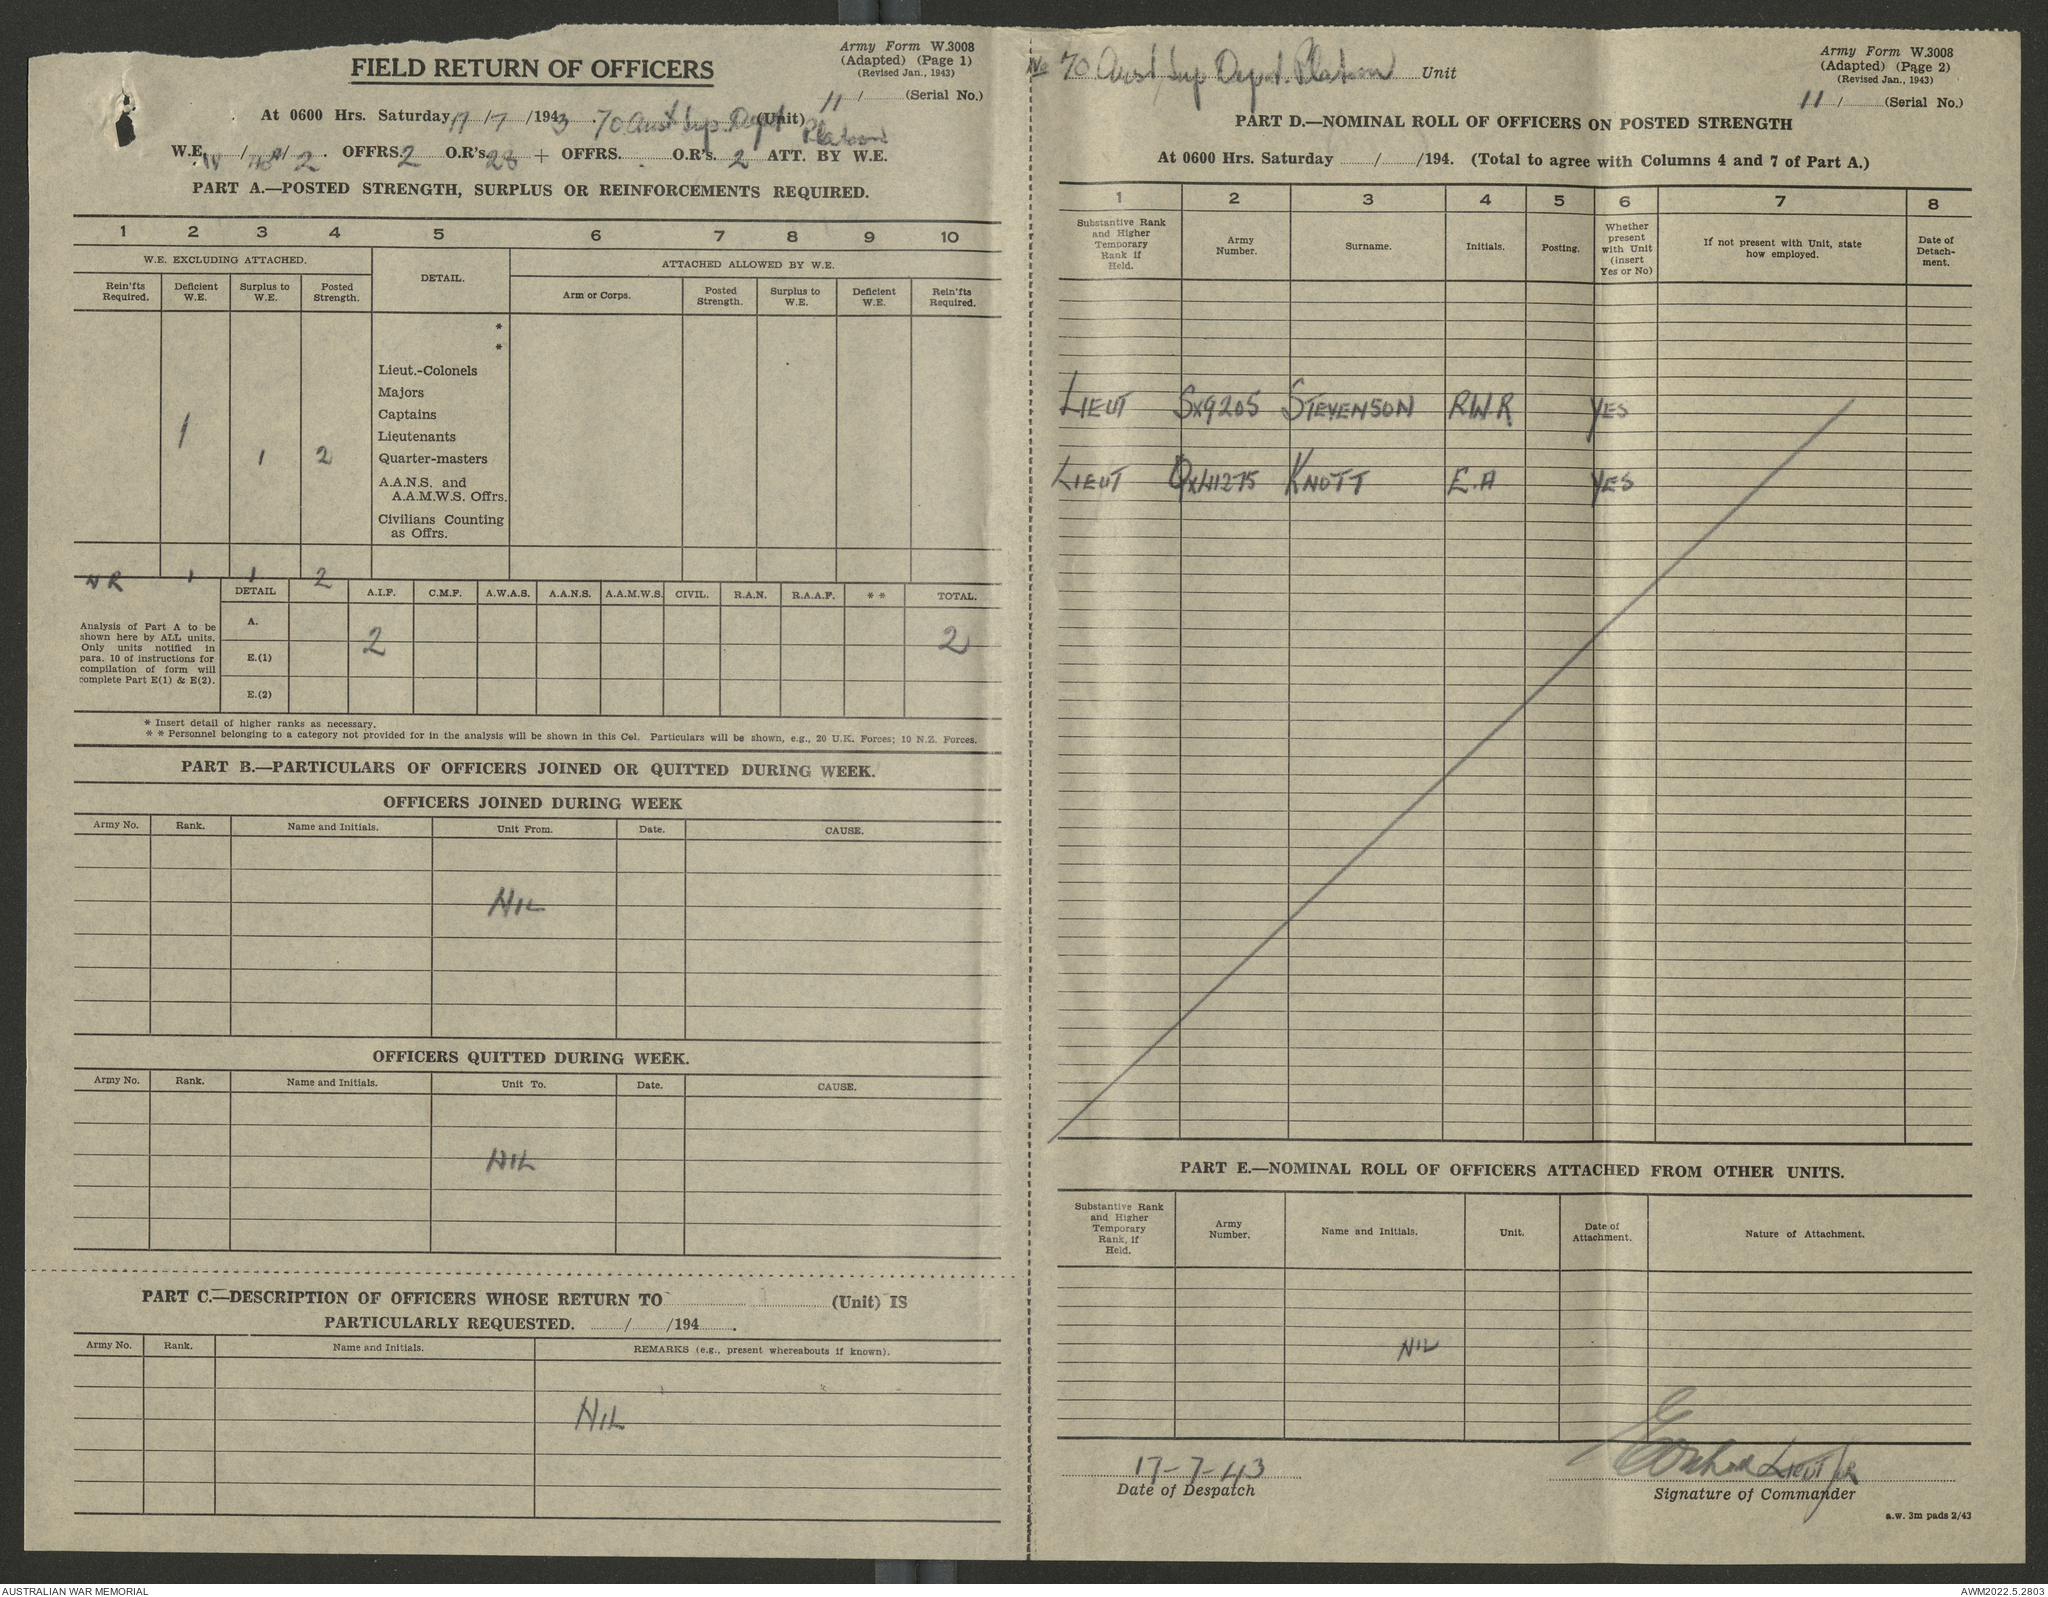 Army Form W.3008
(Adapted) (Page 1)
(Revised Jan., 1943)
FIELD RETURN OF OFFICERS
11 / (Serial No.)
At 0600 Hrs. Saturday 17/7/1943 70 Aust Sup. Depot (Unit)
Platoon
W.E. / / 2. OFFRS. 2 O.R's. 28 + OFFRS. . O.R's. 2 ATT. BY W.E.
PART A.—POSTED STRENGTH, SURPLUS OR REINFORCEMENTS REQUIRED.
1 2 3 4 5 6 7 8 9 10
W.E. EXCLUDING ATTACHED. DETAIL. ATTACHED ALLOWED BY W.E.
Rein'fts Required. Deficient W.E. Surplus to W.E. Posted Strength. Arm or Corps. Posted Strength. Surplus to W.E. Deficient W.E. Rein'fts Required.
*
*
Lieut.-Colonels
Majors
Captains
1 Lieutenants
1 2 Quarter-masters
A.A.N.S. and
A.A.M.W.S. Offrs.
Civilians Counting
as Offrs.
NR 1 1 2
DETAIL A.I.F. C.M.F. A.W.A.S. A.A.N.S. A.A.M.W.S. CIVIL. R.A.N. R.A.A.F. * * TOTAL.
Analysis of Part A to be
shown here by ALL units.
Only units notified in
para. 10 of instructions for
compilation of form will
complete Part E(1) & E(2).
A. 2 2
E.(1)
E.(2)
* Insert detail of higher ranks as necessary.
* * Personnel belonging to a category not provided for in the analysis will be shown in this Col. Particulars will be shown, e.g., 20 U.K. Forces; 10 N.Z. Forces.
PART B.—PARTICULARS OF OFFICERS JOINED OR QUITTED DURING WEEK.
OFFICERS JOINED DURING WEEK
Army No. Rank. Name and Initials. Unit From. Date. CAUSE.
NIL
OFFICERS QUITTED DURING WEEK.
Army No. Rank. Name and Initials. Unit To. Date. CAUSE.
NIL
PART C.—DESCRIPTION OF OFFICERS WHOSE RETURN TO (Unit) IS
PARTICULARLY REQUESTED. / /194 .
Army No. Rank. Name and Initials. REMARKS (e.g., present whereabouts if known).
NIL
No 70 Aust Sup Depot. Platoon Unit
Army Form W.3008
(Adapted) (Page 2)
(Revised Jan., 1943)
11 / (Serial No.)
PART D.—NOMINAL ROLL OF OFFICERS ON POSTED STRENGTH
At 0600 Hrs. Saturday / /194. (Total to agree with Columns 4 and 7 of Part A.)
1 2 3 4 5 6 7 8
Substantive Rank and Higher Temporary Rank if Held. Army Number. Surname. Initials. Posting. Whether present with Unit (insert Yes or No) If not present with Unit, state how employed. Date of Detach-ment.
LIEUT SX9205 STEVENSON RWR YES
LIEUT QX41275 KNOTT E.A YES
PART E.—NOMINAL ROLL OF OFFICERS ATTACHED FROM OTHER UNITS.
Substantive Rank and Higher Temporary Rank, if Held. Army Number. Name and Initials. Unit. Date of Attachment. Nature of Attachment.
NIL
17-7-43
Date of Despatch
LIEUT
Signature of Commander
a.w. 3m pads 2/43
AUSTRALIAN WAR MEMORIAL
AWM2022.5.2803